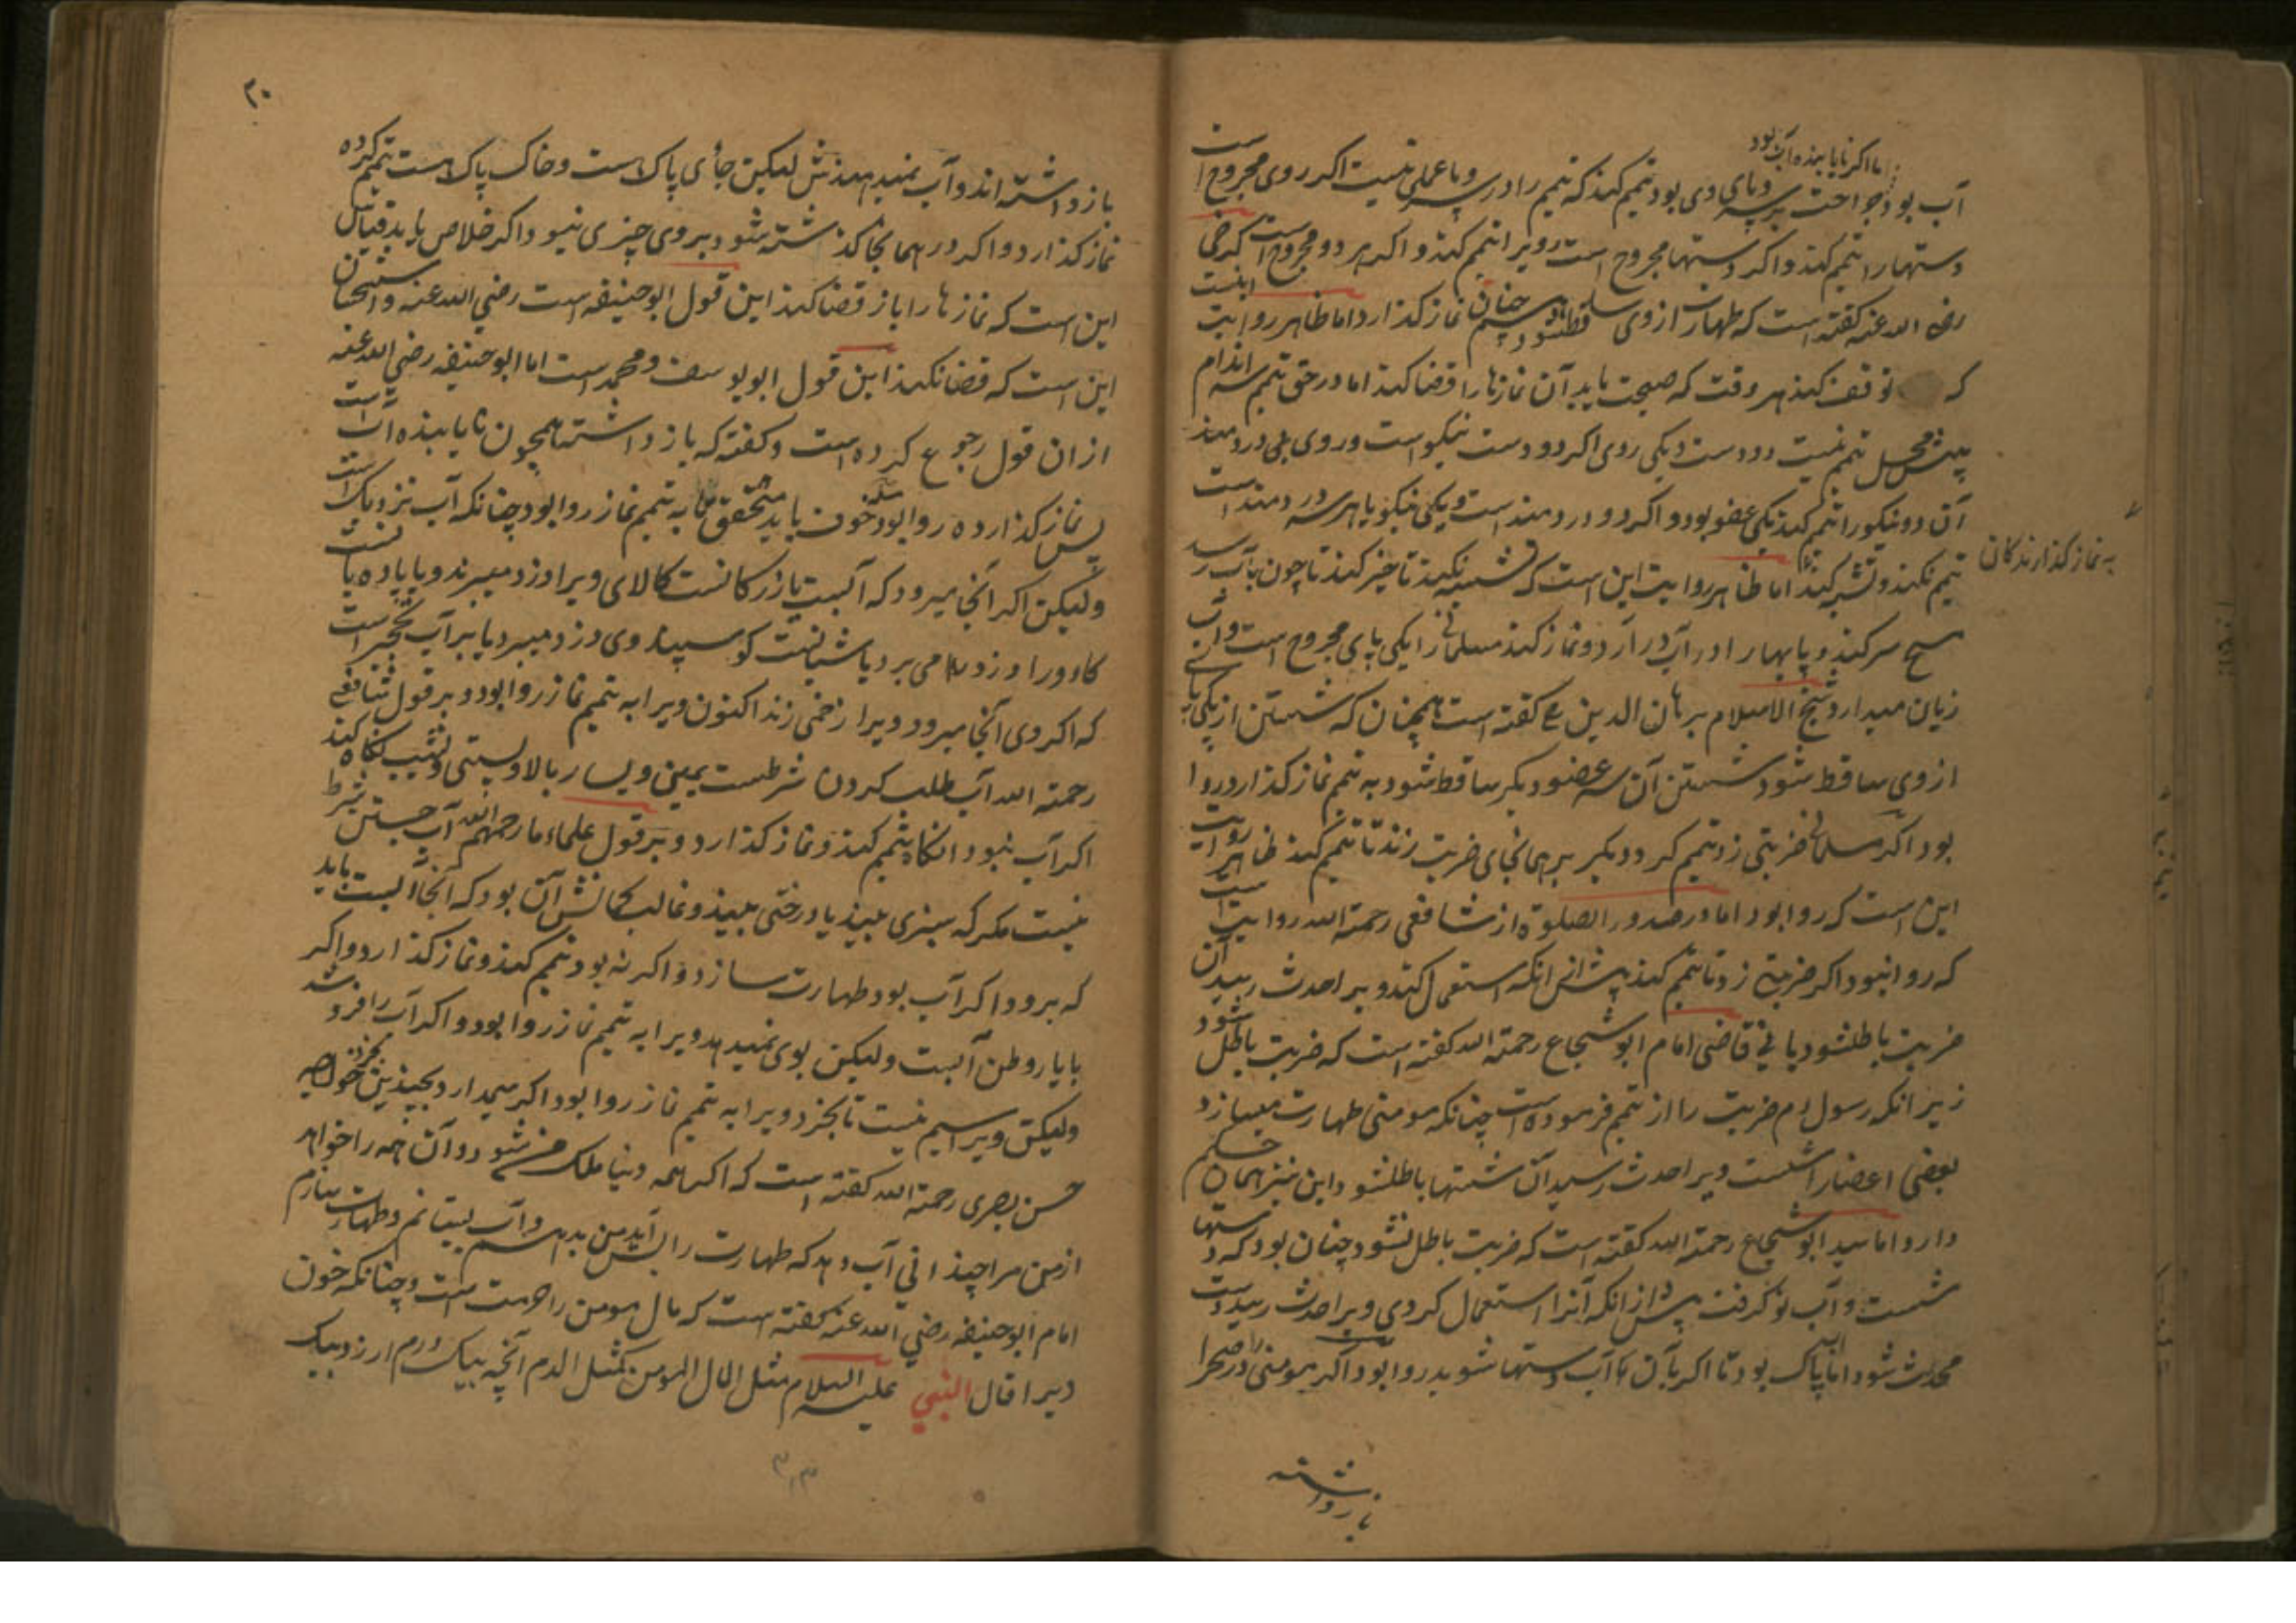 اما اگر نایابنده آب بود
آب بود و جراحت بر سر و پای وی بود تیمم کند که تیمم را در سر و پا عملی نیست اکر روی مجروح است
دستها را تیمم کند و اکر دستها مجروح است رویرا تیمم کند و اکر هر دو مجروح است کرخی
رضی الله عنه کفته است که طهارت از وی ساقط شود چنان نماز کذارد اما ظاهر روایت اینست
که توقف کند هر وقت که صحت یابد آن نمازها را قضا کند اما در حق تیمم سه اندام
پیش محل تیمم نیست دو دست و یکی روی اکر دو دست نیکو است و روی دردمند
آن دو نیکو را تیمم کند یکی عضو بود و اکر دو دردمند است و یکی نیکو یا هر سه دردمند است
تیمم نکند و تشبه کند اما ظاهر روایت این است که تشبه نکند تاخیر کند تا چون بآب رسد
به نماز کذارندکان
مسح سر کند و پایها را در آب در آرد و نماز کند مسلمانی را یکی پای مجروح است و آب
زیان میدارد شیخ الاسلام برهان الدین کفته است همچنان که شستن از یکی پای
از وی ساقط شود شستن آن سه عضو دیکر ساقط شود به تیمم نماز کذارد روا
بود اکر مسلمانی ضربتی زد تیمم کرد دیکر بر همانجای ضربت زند تا تیمم کند ظاهر روایت
این است که روا بود اما در صدور الصلوة از شافعی رحمة الله روایت است
که روا نبود اکر ضربتی زد تا تیمم کند پیش از انکه استعمال کند ویرا حدث رسید آن
ضربت باطل شود یا نی قاضی امام ابو شجاع رحمة الله کفته است که ضربت باطل شود
زیرانکه رسول ضربت را از تیمم فرموده است چنانکه مومنی طهارت میسازد
بعضی اعضا را شست ویرا حدث رسید آن شستها باطل شود این نیز همان حکم
دارد اما سید ابو شجاع رحمة الله کفته است که ضربت باطل نشود چنان بود که دستها
شست و آب نو کرفت پیش از انکه آنرا استعمال کردی ویرا حدث رسید دست
محدث شود اما آب پاک بود تا اکر بآن آب دستها شوید روا بود اکر مومنی را در صحرا
باز داشته
۲۰
باز داشته اند و آب نمیدهندش لیکن جای پاک است و خاک پاک است تیمم کرده
نماز کذارد و اکر در همانجا کذاشته شود بر وی چیزی نبود اکر خلاص یابد قیاس
این است که نمازها را باز قضا کند این قول ابو حنیفه است رضی الله عنه و استحسان
این است که قضا نکند این قول ابو یوسف و محمد است اما ابو حنیفه رضی الله عنه
از ان قول رجوع کرده است و کفته که باز داشته همچون نایابنده آب است
پس نماز کذارده روا بود خون باید متحقق به تیمم نماز روا بود چنانکه آب نزدیک است
ولیکن اکر آنجا میرود که آبست بازرکانست کالای ویرا دزد میبرد و یا پیاده
کاو ورا دزد می برد یا شبانست کوسپند وی دزد میبرد یا بر آب است
که اکر وی آنجا میرود ویرا زخمی زند اکنون ویرا به تیمم نماز روا بود و بر قول شافعی
رحمة الله آب طلب کردن شرطست یمین و یسار بالا و پستی و نشیب نکاه کند
اکر آب نبود انکاه تیمم کند و نماز کذارد و بر قول علماء ما رحمهم الله آب جستن شرط
نیست مکر که سبزی بیند یا درختی بیند و غالب کمانش آن بود که آنجا آبست باید
که برود اکر آب بود طهارت سازد و اکر نه بود تیمم کند و نماز کذارد و اکر
با یار وطن آبست ولیکن بوی نمیدهد ویرا به تیمم نماز روا بود و اکر آب را فروشد
ولیکن ویرا سیم نیست تا بخرد ویرا به تیمم نماز روا بود اکر سیم دارد بچندین نخرد خواجه
حسن بصری رحمة الله کفته است که اکر همه دنیا ملک من شود و آن همه را خواهد
از من مرا چندانی آب دهد که طهارت را بس آید من بدهم و آب بستانم و طهارت سازم
امام ابو حنیفه رضی الله عنه کفته است که مال مومن را حرمت است چنانکه خون
ویرا قال النبی علیه السلام مثل المال المومن کمثل الدم آنچه بیک درم ارزد بیک